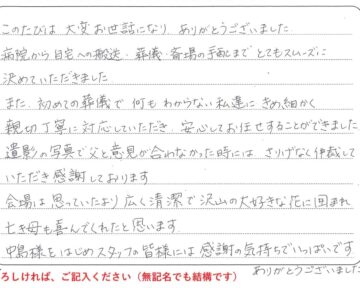 このたびは 大変お世話になり ありがとうございました
病院から自宅への搬送・葬儀・斎場の手配まで とてもスムーズに
決めていただきました
また、初めての葬儀で 何もわからない私達に きめ細かく
親切丁寧に対応していただき、安心してお任せすることができました
遺影の写真で父と意見が合わなかった時には、さりげなく仲裁して
いただき感謝しております
会場は思っていたより広く清潔で沢山の大好きな花に囲まれ
亡き母も喜んでくれたと思います
中島様をはじめスタッフの皆様には感謝の気持ちでいっぱいです
ありがとうございました
ろしければ、ご記入ください（無記名でも結構です）